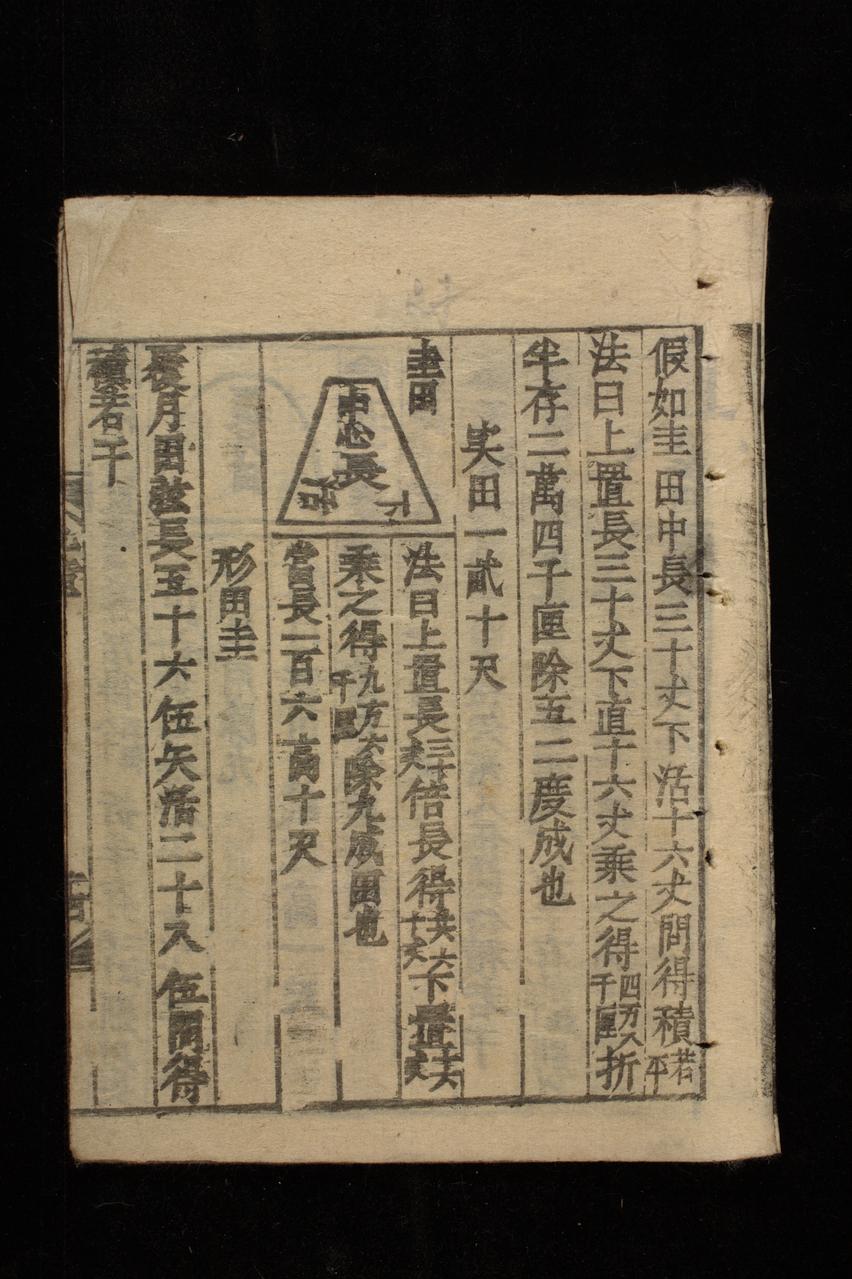 假如圭田中長三十丈下活十六丈問得積若干
法曰上置長三十丈下直十六丈乘之得四万八千厘折
半存二萬四千厘除五二度成也
実田一貳十尺
圭田
中心長
下
法曰上置長三十丈倍長得共六十丈下置十六丈
乘之得九万六千厘除九成田也
當長一百六高十尺
形田圭
月田弦長五十六伍矢活二十八伍問得
積若干